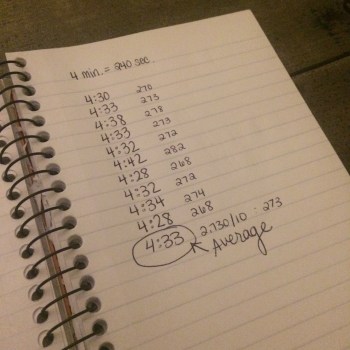 4 min. = 240 sec.
4:30 270
4:33 273
4:38 278
4:33 273
4:32 272
4:42 282
4:28 268
4:32 272
4:34 274
4:28 268
4:33 2,730/10 : 273
Average